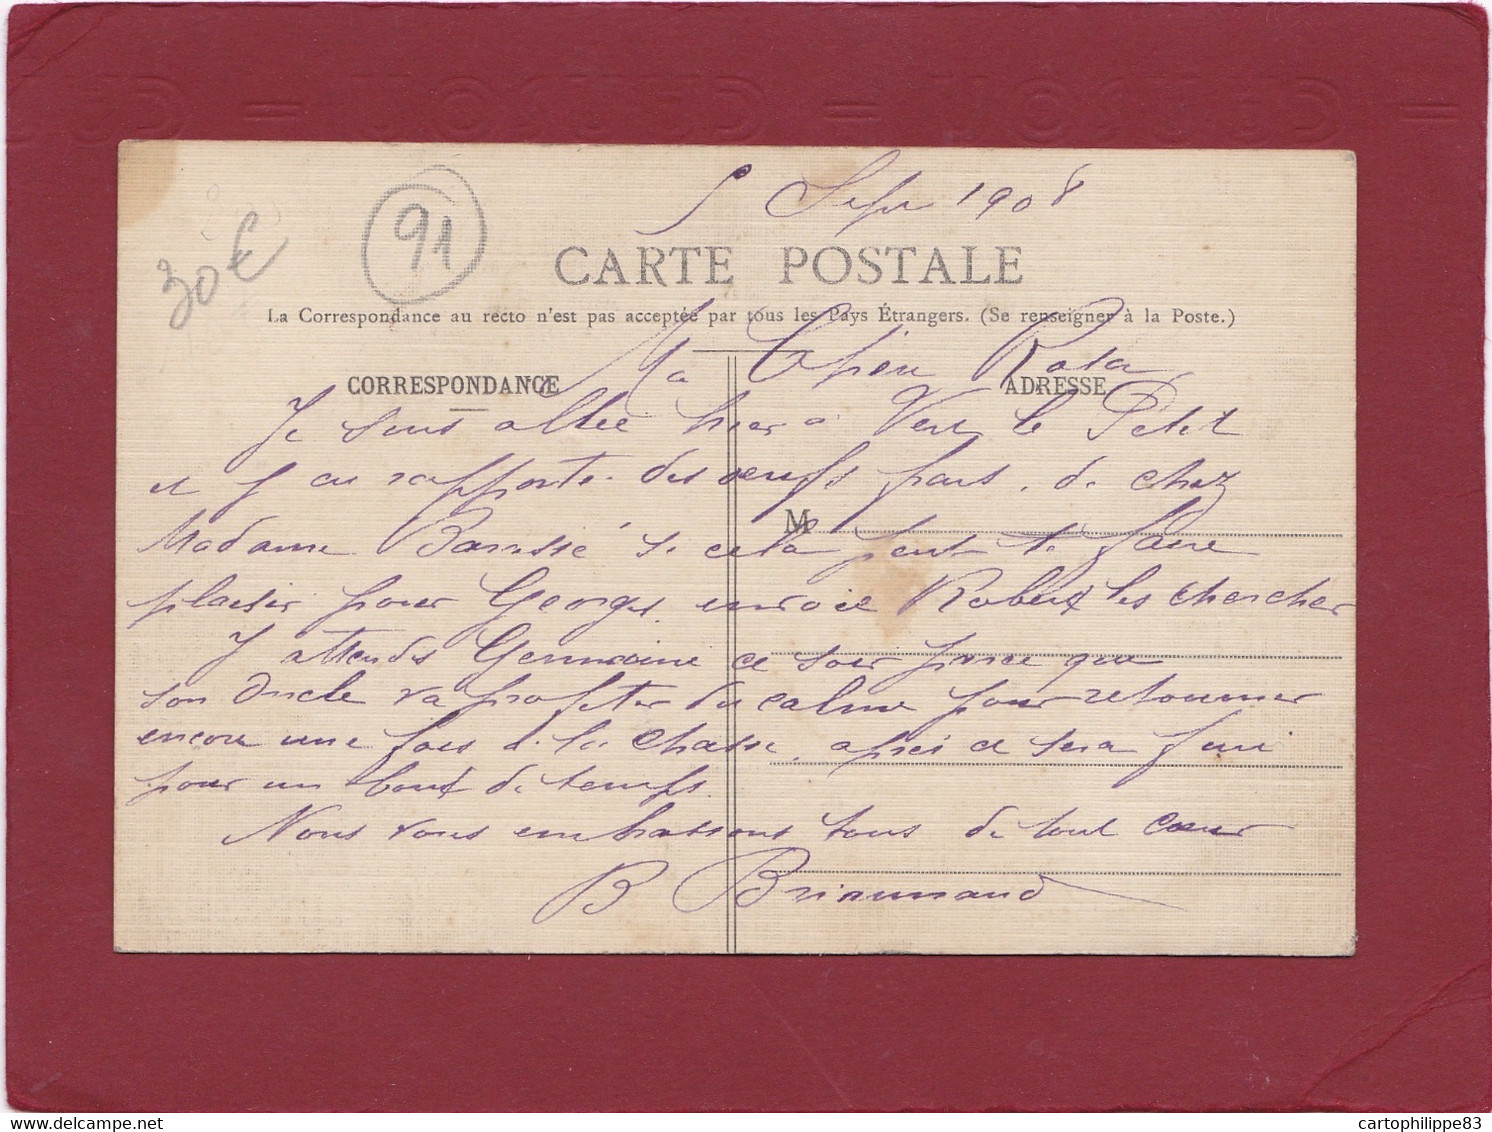 5 Sepr 1908
91
30€
CARTE POSTALE
La Correspondance au recto n'est pas acceptée par tous les Pays Étrangers. (Se renseigner à la Poste.)
Ma
CORRESPONDANCE
ADRESSE
Je suis allée hier à Vert le Petit
et j ai rapporté des œufs frais de chez
M
Madame si cela peut te faire
plaisir pour Georges envoie Robert les chercher
J attends Germaine ce soir parce que
son oncle va profiter du calme pour retourner
encore une fois à la chasse, après ce sera fini
pour un bout de temps.
Nous vous embrassons tous de tout cœur
B
cartophilippe83